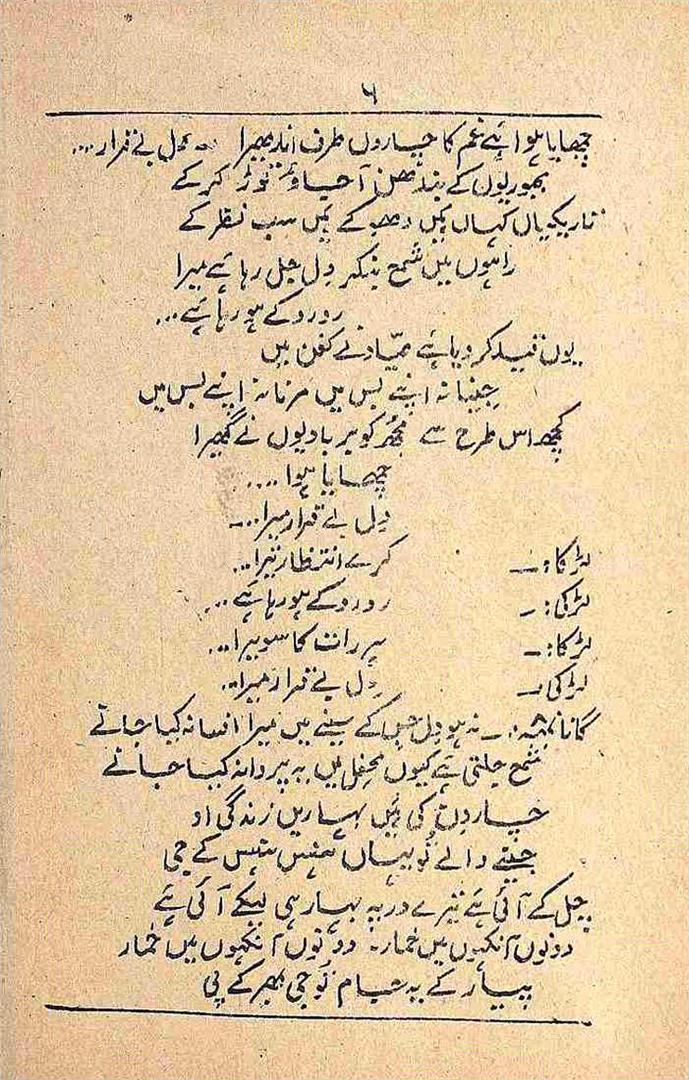 ۶
چھایا ہوا ہے غم کا چاروں طرف اندھیرا دل بے قرار...
مجبوریوں کے بندھن آ جاؤ توڑ کر کے
تاریکیاں کہاں ہیں دھوکے ہیں سب نظر کے
راہوں میں شمع بنکر دل جل رہا ہے میرا
رو رو کے ہو رہا ہے...
یوں قید کر دیا ہے صیّاد نے کفن میں
جینا نہ اپنے بس میں مرنا نہ اپنے بس میں
کچھ اس طرح سے مجھ کو بربادیوں نے گھیرا
چھایا ہوا ....
دل بے قرار میرا...
لڑکا:۔ کرے انتظار تیرا...
لڑکی:۔ رو رو کے ہو رہا ہے...
لڑکا:۔ ہر رات کا سویرا...
لڑکی۔ دل بے قرار میرا...
گانا :۔ نہ ہو دل جس کے سینے میں میرا افسانہ کیا جانے
شمع جلتی ہے کیوں محفل میں یہ پروانہ کیا جانے
چار دن کی ہیں بہاریں زندگی او
جینے والے تُو یہاں ہنس ہنس کے جی
چل کے آئی ہے تیرے در پہ بہار ہی لیکے آئی ہے
دونوں آنکھوں میں خمار۔ دونوں آنکھوں میں خمار
پیار کے یہ جام تُو جی بھر کے پی